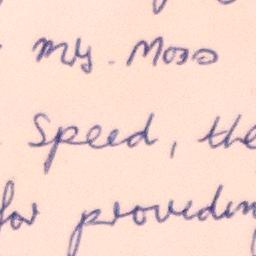 Mrs. Moss
Speed, the
for providin